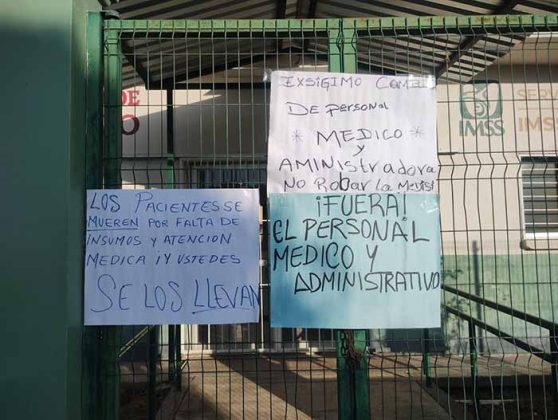 EXSIGIMO
DE Personal
* MEDICO *
y
AMINIStradora
NO RObar La
LOS PacientesSe
MUEREN POR FALTA DE
INSUMOS Y ATENCION
MEDICA ¡Y USTEDES
SE LOS LLEVAN
¡FUERA!
EL PERSONAL
MEDICO Y
ADMINISTRATIVO
DE
O
IMSS
SER
IMS